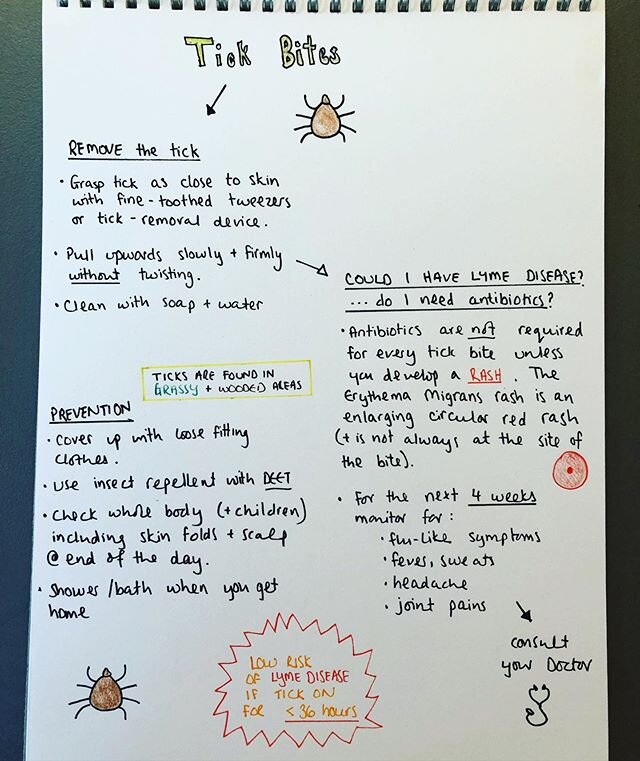 Tick Bites
REMOVE the tick
• Grasp tick as close to skin
with fine-toothed tweezers
or tick-removal device.
• Pull upwards slowly + firmly
without twisting.
• Clean with soap + water
COULD I HAVE LYME DISEASE?
... do I need antibiotics?
• Antibiotics are not required
for every tick bite unless
you develop a RASH. The
Erythema Migrans rash is an
enlarging circular red rash
(+ is not always at the site of
the bite).
• For the next 4 weeks
monitor for:
• flu-like symptoms
• fever, sweats
• headache
• joint pains
consult
your Doctor
TICKS ARE FOUND IN
GRASSY + WOODED AREAS
PREVENTION
• Cover up with loose fitting
clothes.
• Use insect repellent with DEET
• Check whole body (+ children)
including skin folds + scalp
@ end of the day.
• Shower/bath when you get
home
LOW RISK
OF LYME DISEASE
IF TICK ON
FOR < 36 hours